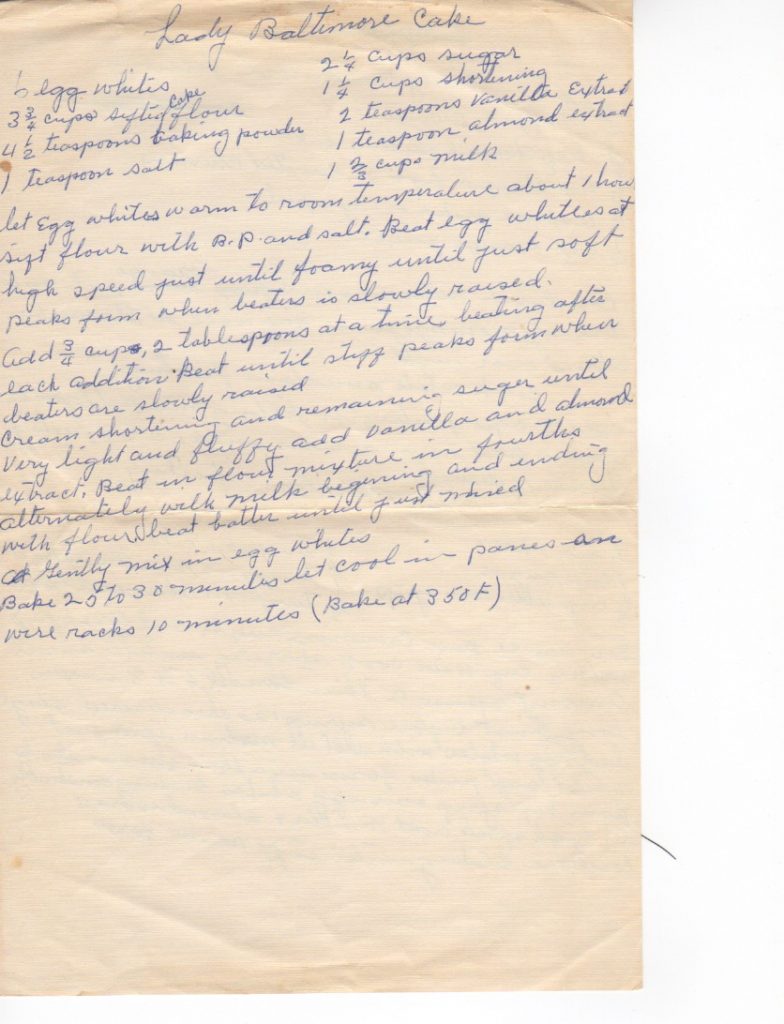 Lady Baltimore Cake
6 egg whites
3 3/4 cups sifted cake flour
4 1/2 teaspoons baking powder
1 teaspoon salt
2 1/4 cups sugar
1 1/4 cups shortening
2 teaspoons vanilla Extract
1 teaspoon almond extract
1 2/3 cups milk
let Egg whites warm to room temperature about 1 hour
sift flour with B.P. and salt. Beat egg whites at
high speed just until foamy until just soft
peaks form when beaters is slowly raised.
Add 3/4 cup, 2 tablespoons at a time beating after
each addition. Beat until stiff peaks form when
beaters are slowly raised
Cream shortening and remaining suger until
Very light and fluffy add vanilla and almond
extract. Beat in flour mixture in fourths
alternately with milk begining and ending
with flour, beat batter until just mixed
Gently mix in egg whites
Bake 25 to 30 minutes let cool in panes on
wire racks 10 minutes (Bake at 350 F)